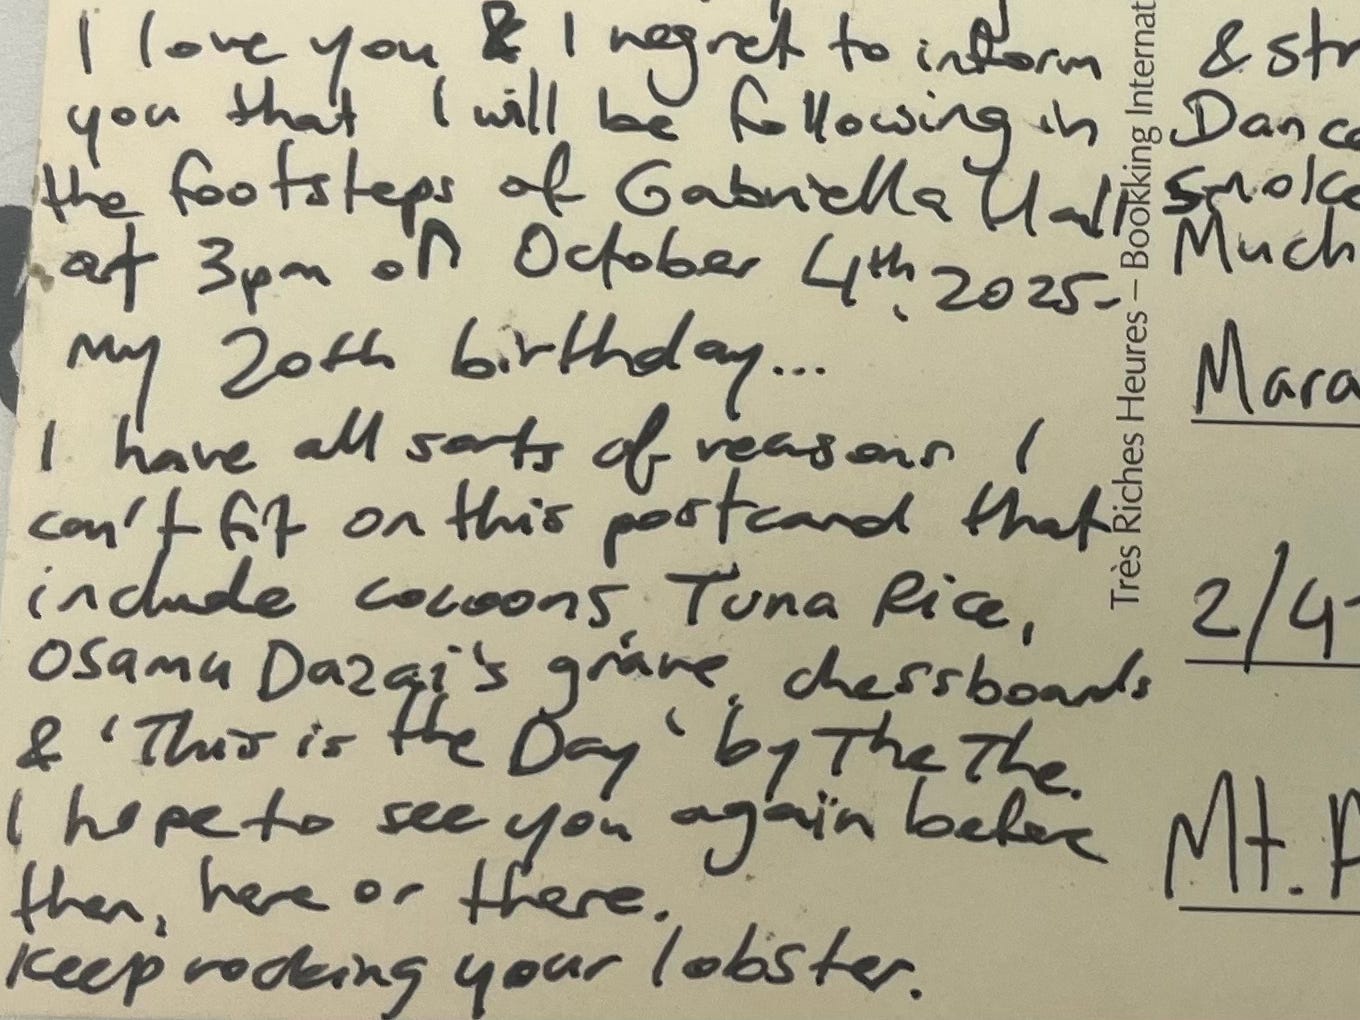 I love you & I regret to inform
you that I will be following in
the footsteps of Gabriella Hall
at 3pm on October 4th, 2025-
my 20th birthday...
I have all sorts of reasons I
can't fit on this postcard that
include cocoons, Tuna Rice,
Osamu Dazai's grave, chessboards
& 'This is the Day' by The The.
I hope to see you again before
then, here or there.
Keep rocking your lobster.
Très Riches Heures – Bookking Internat
& str
Dance
Smoke
Much
Mara
2/4
Mt.